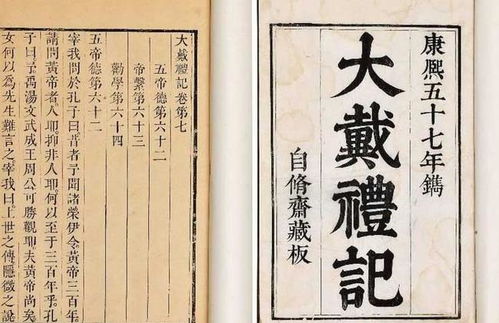 康熙五十七年鐫
大戴禮記
自脩齋藏板
大戴禮記卷第七
五帝德第六十二
帝繫第六十三
勸學第六十四
五帝德第六十二
宰我問於孔子曰昔者予聞諸榮伊令黃帝三百年
請問黃帝者人耶抑非人耶何以至于三百年乎孔
子曰予禹湯文武成王周公可勝觀耶夫黃帝尚矣
女何以爲先生難言之宰我曰上世之傳隱微之說